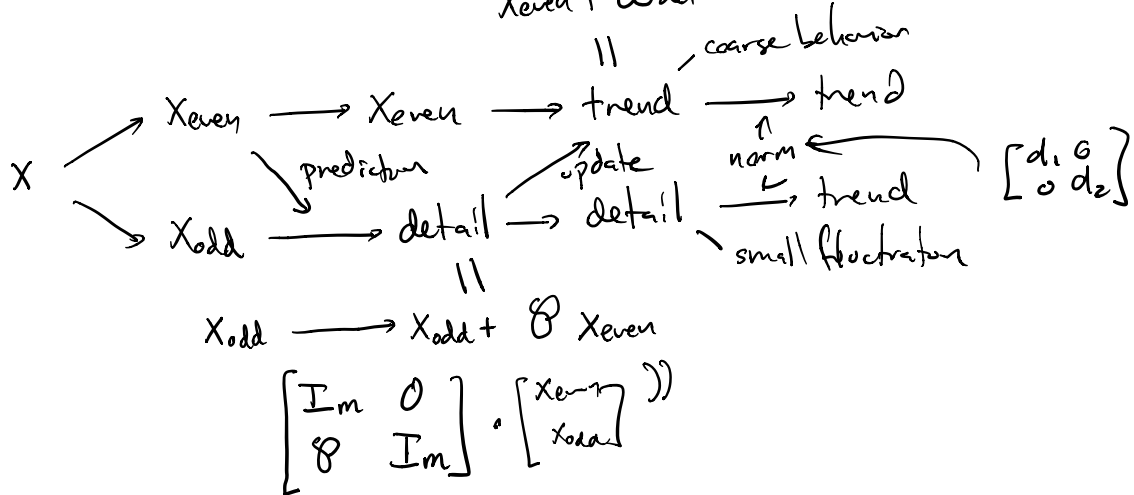 ||
coarse behavior
Xeven → Xeven → trend → trend
X
prediction
update
norm
[d₁ 0
0 d₂]
Xodd → detail → detail → trend
small fluctuation
||
Xodd → Xodd + P Xeven
[Im 0
P Im] · [Xeven
Xodd] ))